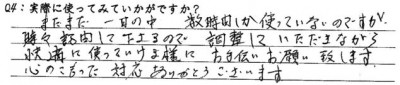 Q4:実際に使ってみていかがですか？
まだまだ 一日の中 数時間しか使っていないのですが、
時々訪問して下さるので 調整して いただきながら
快適に使っていけます様に お手伝いお願い致します。
心のこもった 対応 ありがとうございます